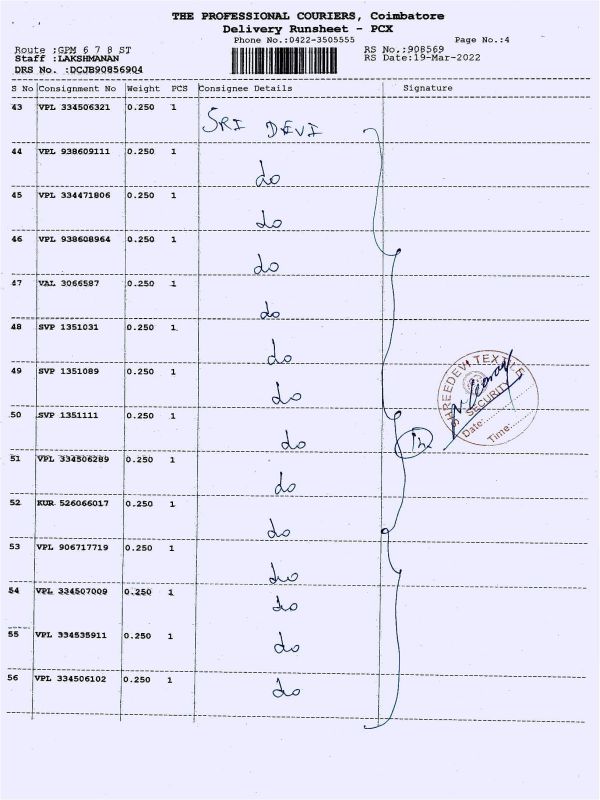 THE PROFESSIONAL COURIERS, Coimbatore
Delivery Runsheet - PCX
Phone No.:0422-3505555 Page No.:4
Route :GPM 6 7 8 ST RS No.:908569
Staff :LAKSHMANAN RS Date:19-Mar-2022
DRS No. :DCJB90856904
S No Consignment No Weight PCS Consignee Details Signature
43 VPL 334506321 0.250 1 SRI DEVI
44 VPL 938609111 0.250 1 do
45 VPL 334471806 0.250 1 do
46 VPL 938608964 0.250 1 do
47 VAL 3066587 0.250 1 do
48 SVP 1351031 0.250 1 do
49 SVP 1351089 0.250 1 do
50 SVP 1351111 0.250 1 do
51 VPL 334506289 0.250 1 do
52 KUR 526066017 0.250 1 do
53 VPL 906717719 0.250 1 do
54 VPL 334507009 0.250 1 do
55 VPL 334535911 0.250 1 do
56 VPL 334506102 0.250 1 do
SHREEDEVI TEXTILE
SECURITY
Date:
Time: